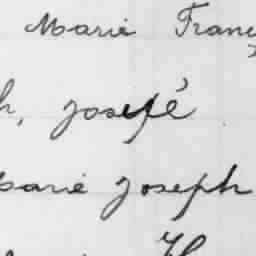 Marie Franç
h, josefé
parie joseph